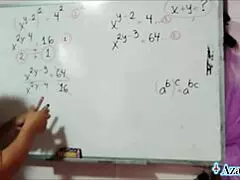 (x^(y-2))^2 = 4^2
x^(2y-4) = 16 ①
② ÷ ①
x^(2y-3) = 64
x^(2y-4) 16
x^(y-2) = 4 ①
x^(2y-3) = 64 ②
x + y = ?
(a^b)^c = a^(bc)
Aza